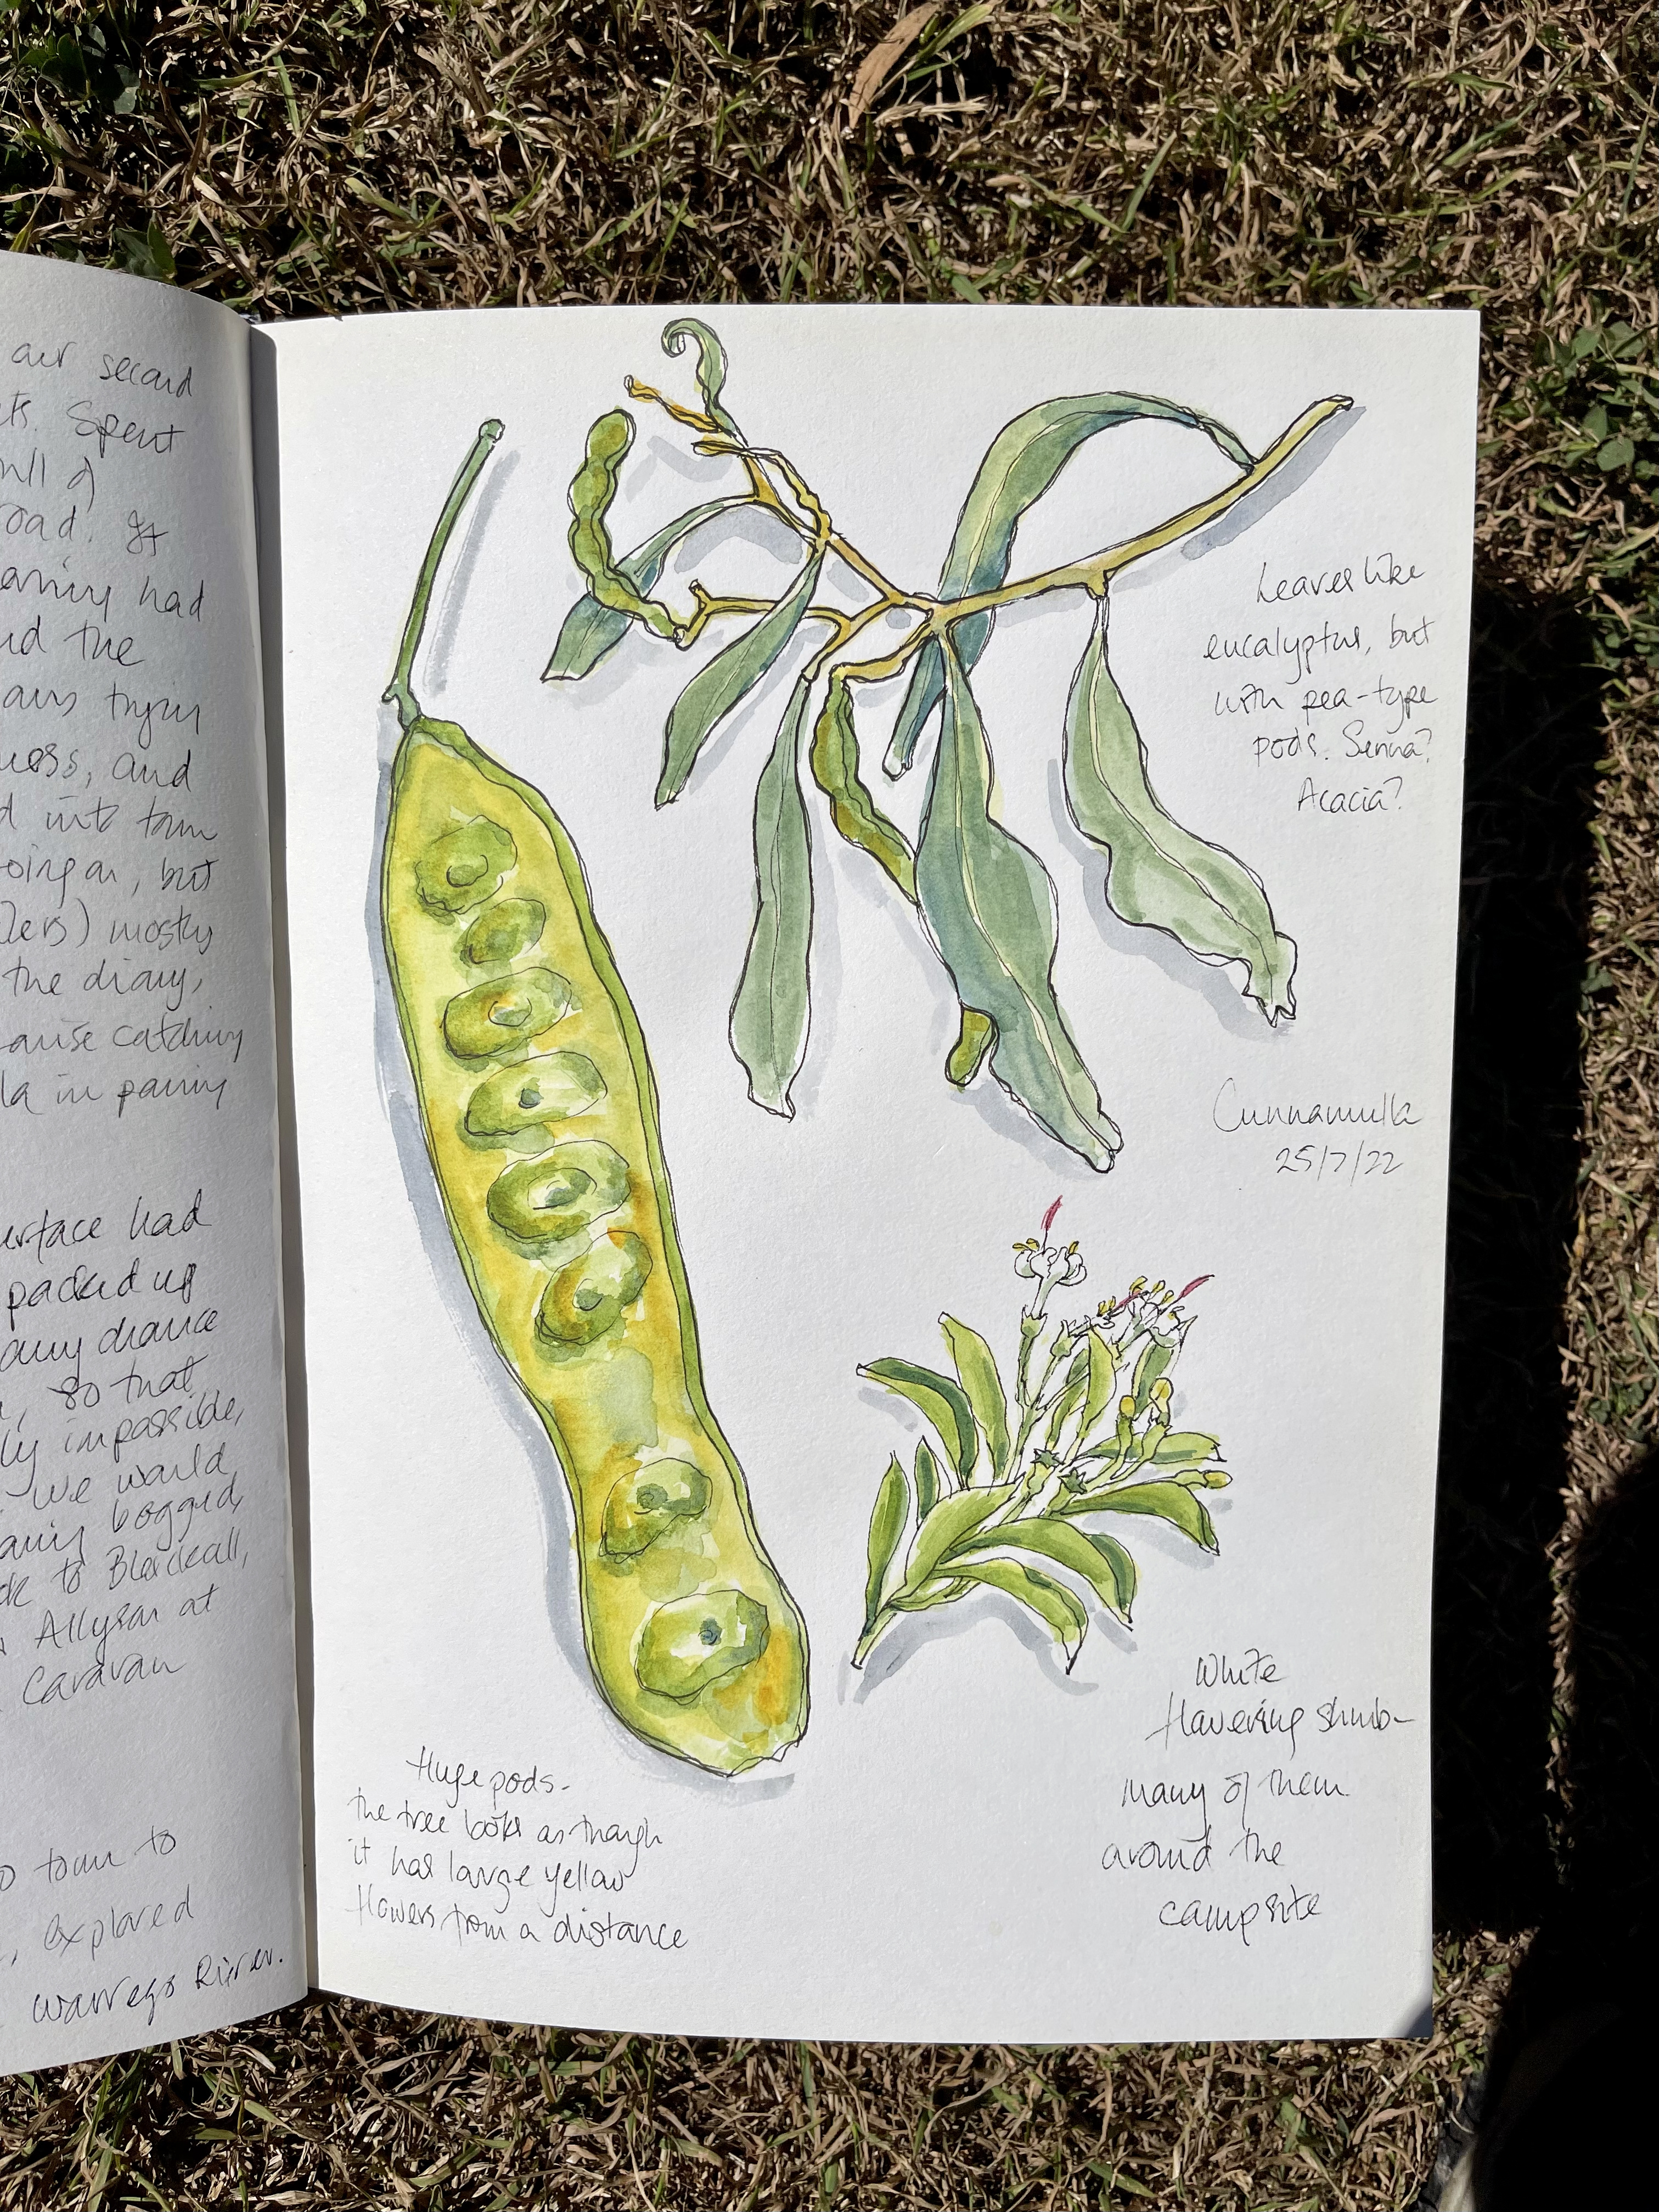 our second
ts. Spent
road. It
had
nd the
trying
ness, and
d into town
oing on, but
lers) mostly
the diary,
cause catching
la in paring
urface had
packed up
any chance
so that
ly impassible,
we would
bogged,
to Blackall,
Allyson at
Caravan
town to
explored
Warrego River.
Leaves like
eucalyptus, but
with pea-type
pods. Senna?
Acacia?
Cunnamulla
25/7/22
White
flowering shrub-
many of them
around the
campsite
Huge pods-
the tree looks as though
it has large yellow
flowers from a distance